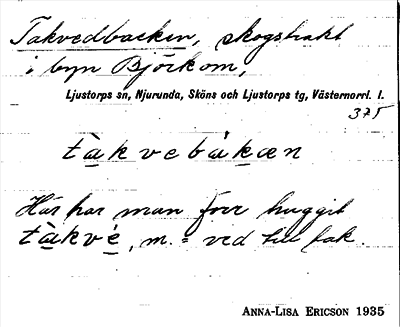 Takvedbacken, skogstrakt
i byn Björkom,
Ljustorps sn, Njurunda, Sköns och Ljustorps tg, Västernorrl. l.
375
tàkvebàkæn
Här har man förr huggit
tàkvè, m. = ved till tak.
ANNA-LISA ERICSON 1935